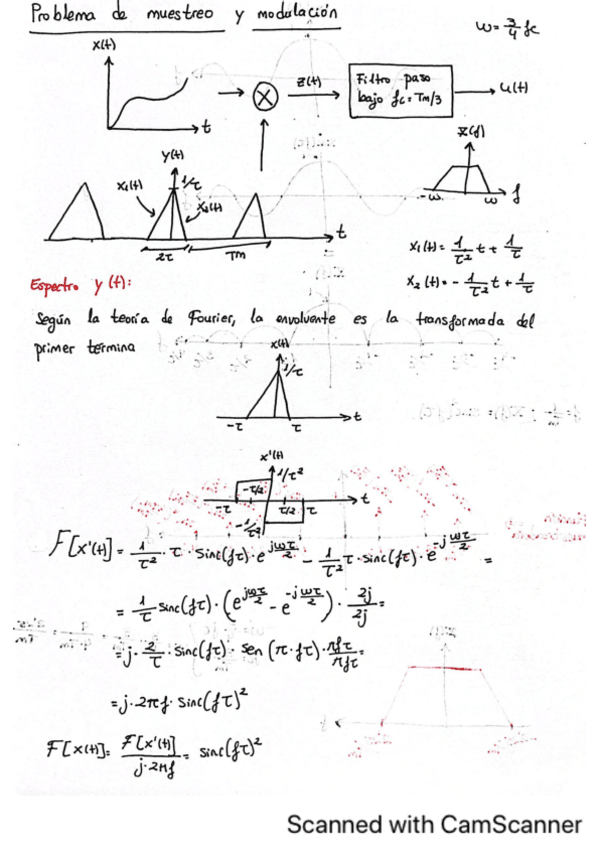 Problema de muestreo y modulación
w = 3/4 fc
x(t)
t
X
z(t)
Filtro paso
bajo fc = Tm/3
u(t)
y(t)
1/τ
x₁(t)
x₂(t)
2τ
Tm
t
X(f)
-w
w
f
x₁(t) = 1/τ² t + 1/τ
x₂(t) = - 1/τ² t + 1/τ
Espectro y(t):
Según la teoría de Fourier, la envolvente es la transformada del
primer termina
x(t)
1/τ
-τ
τ
t
x'(t)
1/τ²
-τ
-τ/2
τ/2
τ
t
-1/τ²
F[x'(t)] = 1/τ² · τ · sinc(fτ) · e^(jωτ/2) - 1/τ² τ · sinc(fτ) · e^(-jωτ/2) =
= 1/τ sinc(fτ) · (e^(jωτ/2) - e^(-jωτ/2)) · 2j/2j =
= j · 2/τ · sinc(fτ) · sen(π · fτ) · πfτ/πfτ =
= j · 2πf · sinc(fτ)²
F[x(t)] = F[x'(t)]/j·2πf = sinc(fτ)²
Scanned with CamScanner